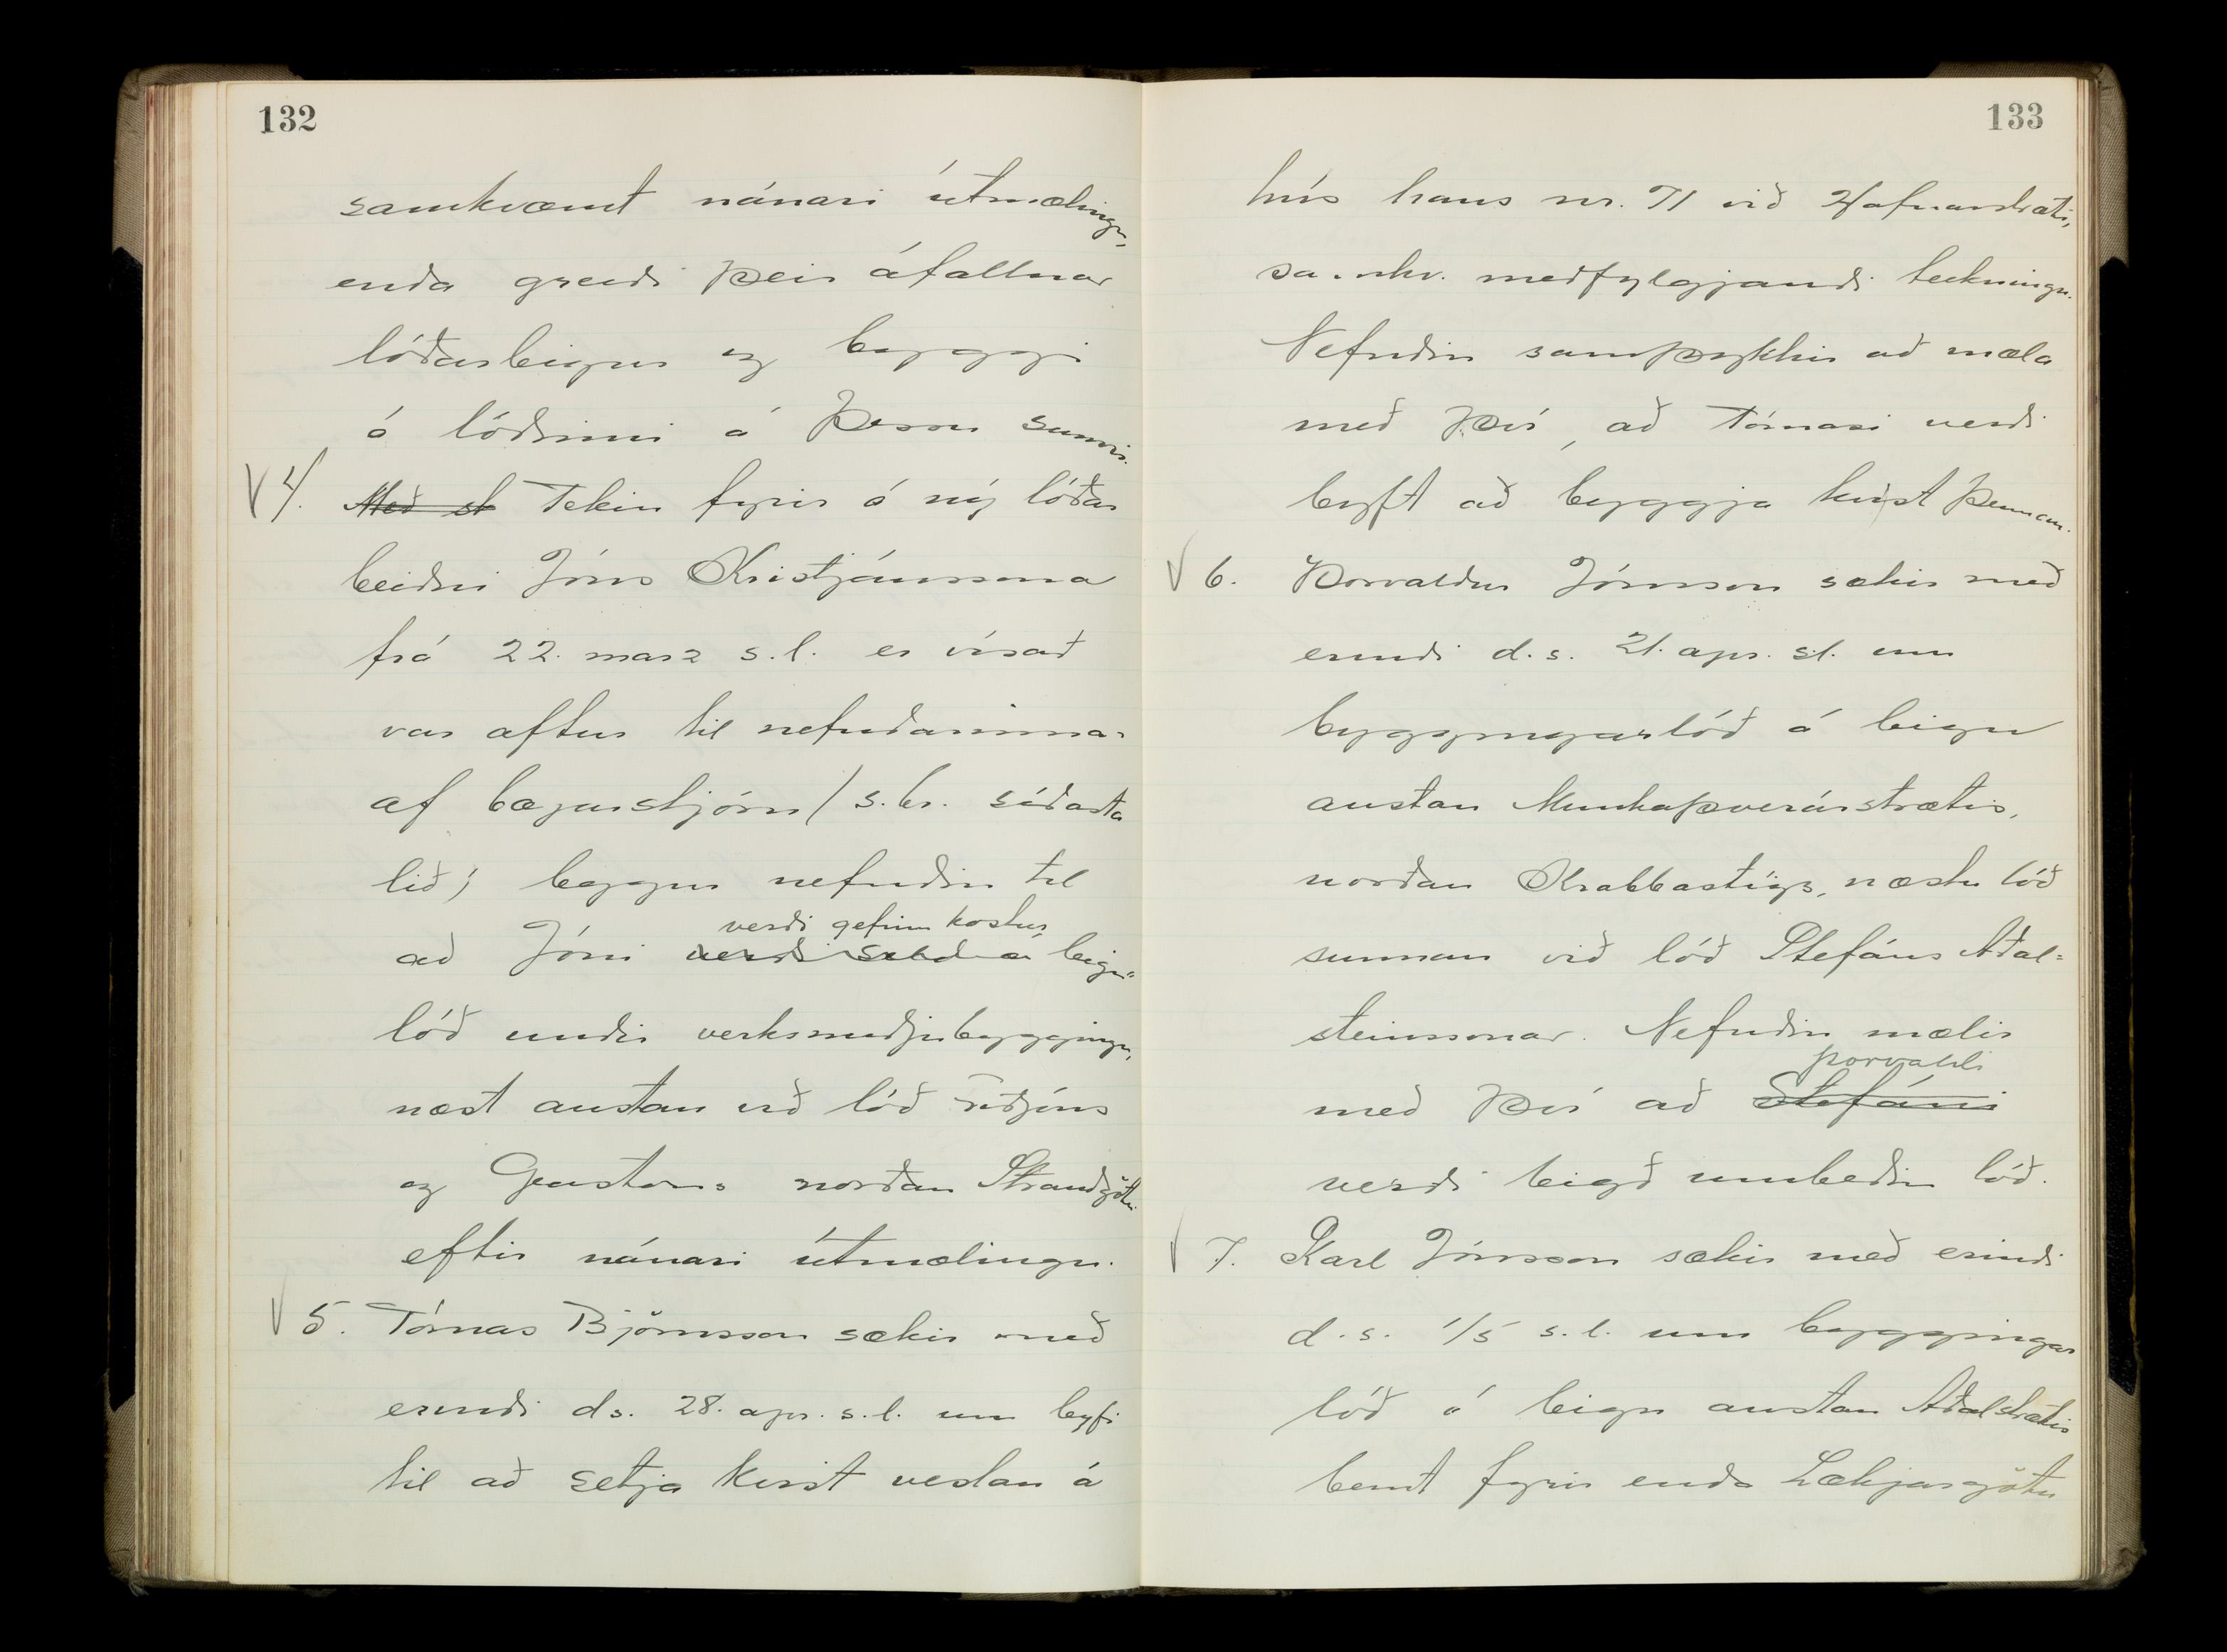 132
samkvæmt nánari útmælingu,
enda greiði þeir áfallnar
lóðarleigur og byggi
á lóðinni á þessu sumri.
4. Með st Tekin fyrir á ný lóðar
beiðni Jóns Kristjánssonar
frá 22. marz s.l. er vísað
var aftur til nefndarinnar
af bæjarstjórn / s.br. síðasta
lið; leggur nefndin til
verði gefinn kostur
að Jóni verði á leigu-
lóð undir verksmiðjubyggingu,
næst austan við lóð Guðjóns
og Gustavs norðan Strandgötu
eftir nánari útmælingu.
5. Tómas Björnsson sækir með
erindi ds. 28. apr. s.l. um leyfi
til að setja kvist vestan á
133
hús hans nr. 71 við Hafnarstræti,
samkv. meðfylgjandi teikningu.
Nefndin samþykkir að mæla
með því, að Tómasi verði
leyft að byggja kvist þennan.
6. Þorvaldur Jónsson sækir með
erindi d.s. 21. apr. s.l. um
byggingarlóð á leigu
austan Munkaþverárstrætis,
norðan Krabbastígs, næstu lóð
sunnan við lóð Stefáns Aðal-
steinssonar. Nefndin mælir
Þorvaldi
með því að Stefáni
verði leigð umbeðin lóð.
7. Karl Jónsson sækir með erindi
d.s. 1/5 s.l. um byggingar
lóð á leigu austan Aðalstrætis
beint fyrir enda Lækjargötu